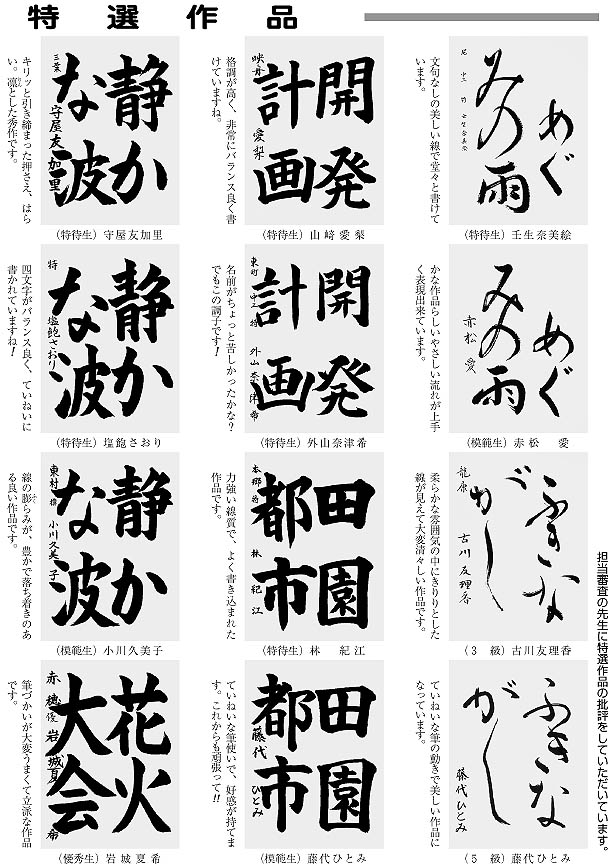 特選作品
担当審査の先生に特選作品の批評をしていただいています。
めぐ
みの雨
文句なしの美しい線で堂々と書けて
います。
(特待生) 壬生奈美絵
開発
計画
映舟 愛梨
格調が高く、非常にバランス良く書
けていますね。
(特待生) 山﨑愛梨
静か
な波
三葉 守屋友加里
キリッと引き締まった押さえ、はら
い。凛とした秀作です。
(特待生) 守屋友加里
めぐ
みの雨
赤松 愛
かな作品らしいやさしい流れが上手
く表現出来ています。
(模範生) 赤松 愛
開発
計画
東町 中二 特 外山奈津希
名前がちょっと苦しかったかな?
でもこの調子です!
(特待生) 外山奈津希
静か
な波
特 塩飽さおり
四文字がバランス良く、ていねいに
書かれていますね!
(特待生) 塩飽さおり
ふきな
がし
古川友理香
柔らかな雰囲気の中にきりりとした
線が見えて大変清々しい作品です。
(3 級) 古川友理香
田園
都市
林 紀江
力強い線質で、よく書き込まれた
作品です。
(特待生) 林 紀江
静か
な波
東村 小川久美子
線の膨らみが、豊かで落ち着きのあ
る良い作品です。
(模範生) 小川久美子
ふきな
がし
藤代ひとみ
ていねいな筆の動きで美しい作品に
なっています。
(5 級) 藤代ひとみ
田園
都市
藤代 ひとみ
ていねいな筆使いで、好感が持てま
す。これからも頑張って!!
(模範生) 藤代ひとみ
花火
大会
赤穂 岩城夏希
筆づかいが大変うまくて立派な作品
です。
(優秀生) 岩城夏希